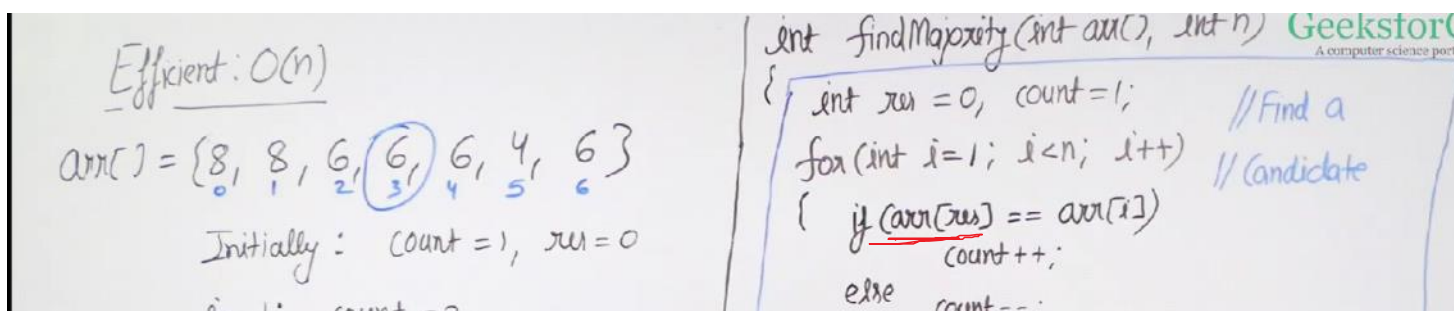 Efficient: O(n)
arr[] = {8, 8, 6, 6, 6, 4, 6}
0 1 2 3 4 5 6
Initially: count = 1, res = 0
int findMajority(int arr[], int n)
{
int res = 0, count = 1;
for(int i=1; i<n; i++)
{ if (arr[res] == arr[i])
count++;
else
count--;
// Find a
// Candidate
GeeksforG
A computer science port